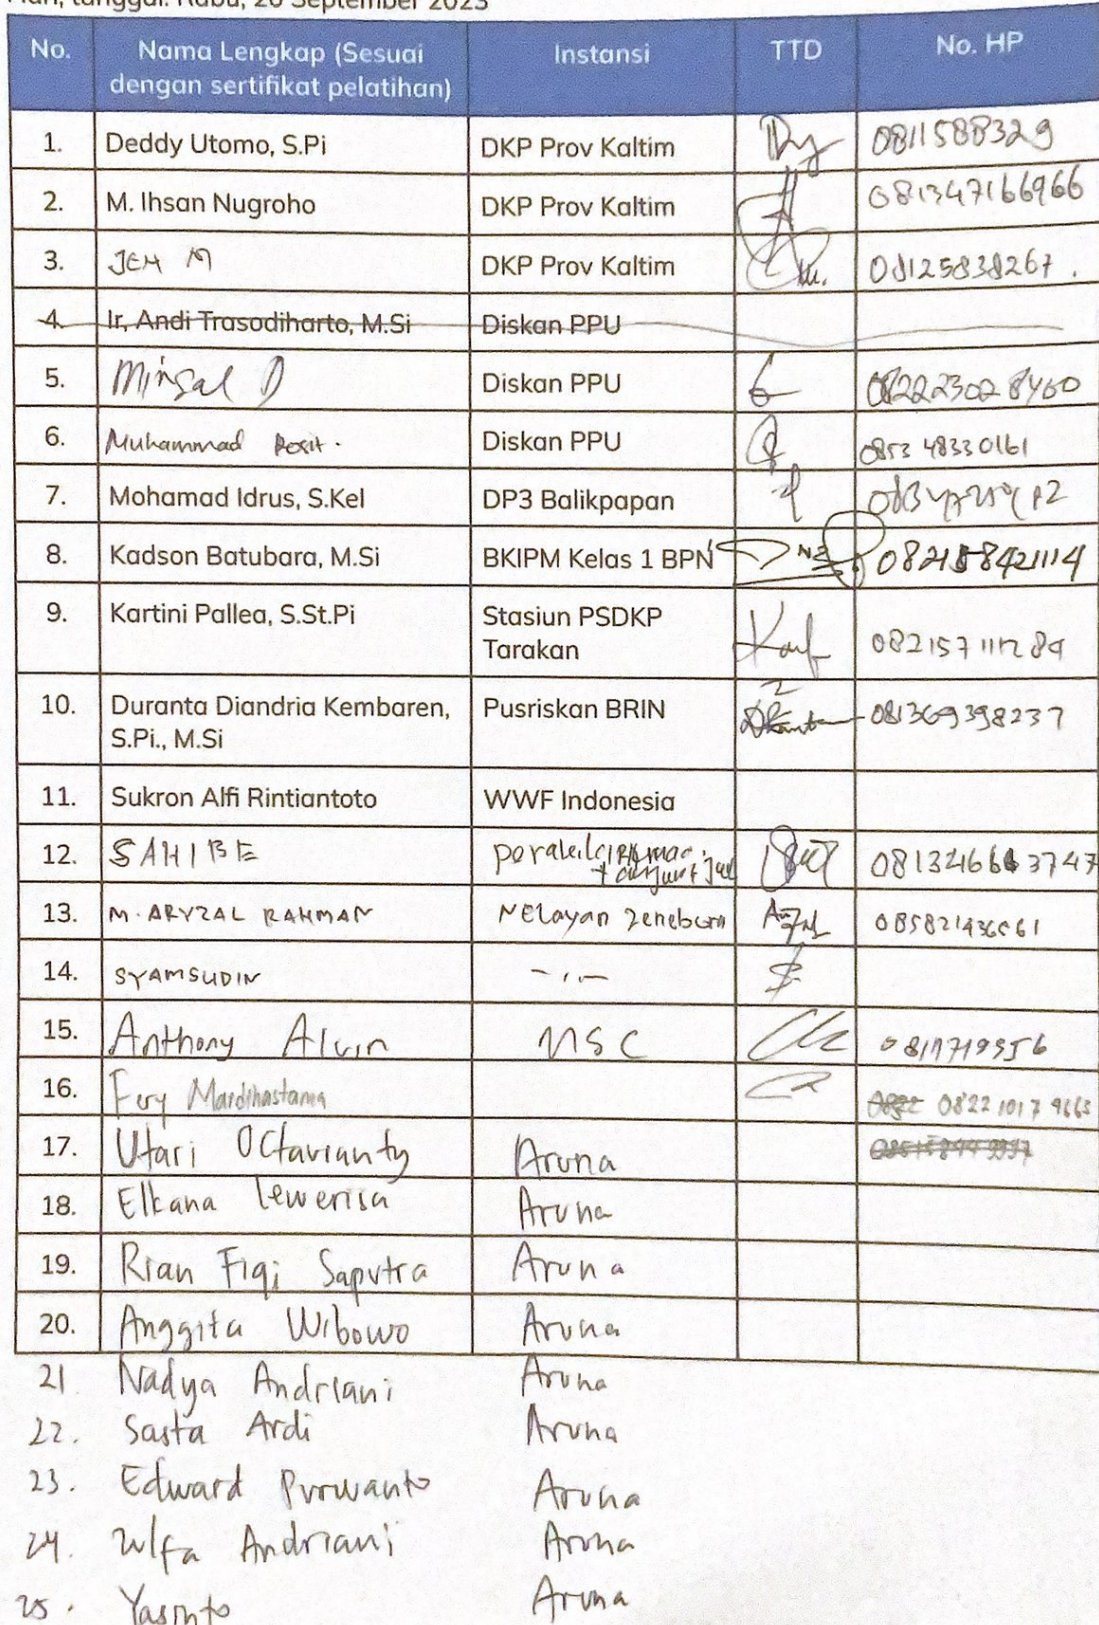 Hari, tanggal: Rabu, 20 September 2023
No. Nama Lengkap (Sesuai dengan sertifikat pelatihan) Instansi TTD No. HP
1. Deddy Utomo, S.Pi DKP Prov Kaltim 0811588329
2. M. Ihsan Nugroho DKP Prov Kaltim 081347166966
3. JEM M DKP Prov Kaltim 08125838267.
4. Ir, Andi Trasodiharto, M.Si Diskan PPU
5. Minsal D Diskan PPU 082223028460
6. Muhammad Diskan PPU 0853 48330161
7. Mohamad Idrus, S.Kel DP3 Balikpapan
8. Kadson Batubara, M.Si BKIPM Kelas 1 BPN 082158421114
9. Kartini Pallea, S.St.Pi Stasiun PSDKP
Tarakan 082157111289
10. Duranta Diandria Kembaren, Pusriskan BRIN 081369398237
S.Pi., M.Si
11. Sukron Alfi Rintiantoto WWF Indonesia
12. SAHIBE
13. M. ARYZAL RAHMAN Nelayan
14. SYAMSUDIN -,,-
15. Anthony Alvin MSC
16. Mardihastama 0822 1017 9665
17. Utari Octavianty Aruna
18. Elkana Lewerisa Aruna
19. Rian Fiqi Saputra Aruna
20. Anggita Wibowo Aruna
21 Nadya Andriani Aruna
22. Sasta Ardi Aruna
23. Edward Purwanto Aruna
24. Zulfa Andriani Aruna
25. Yasinto Aruna